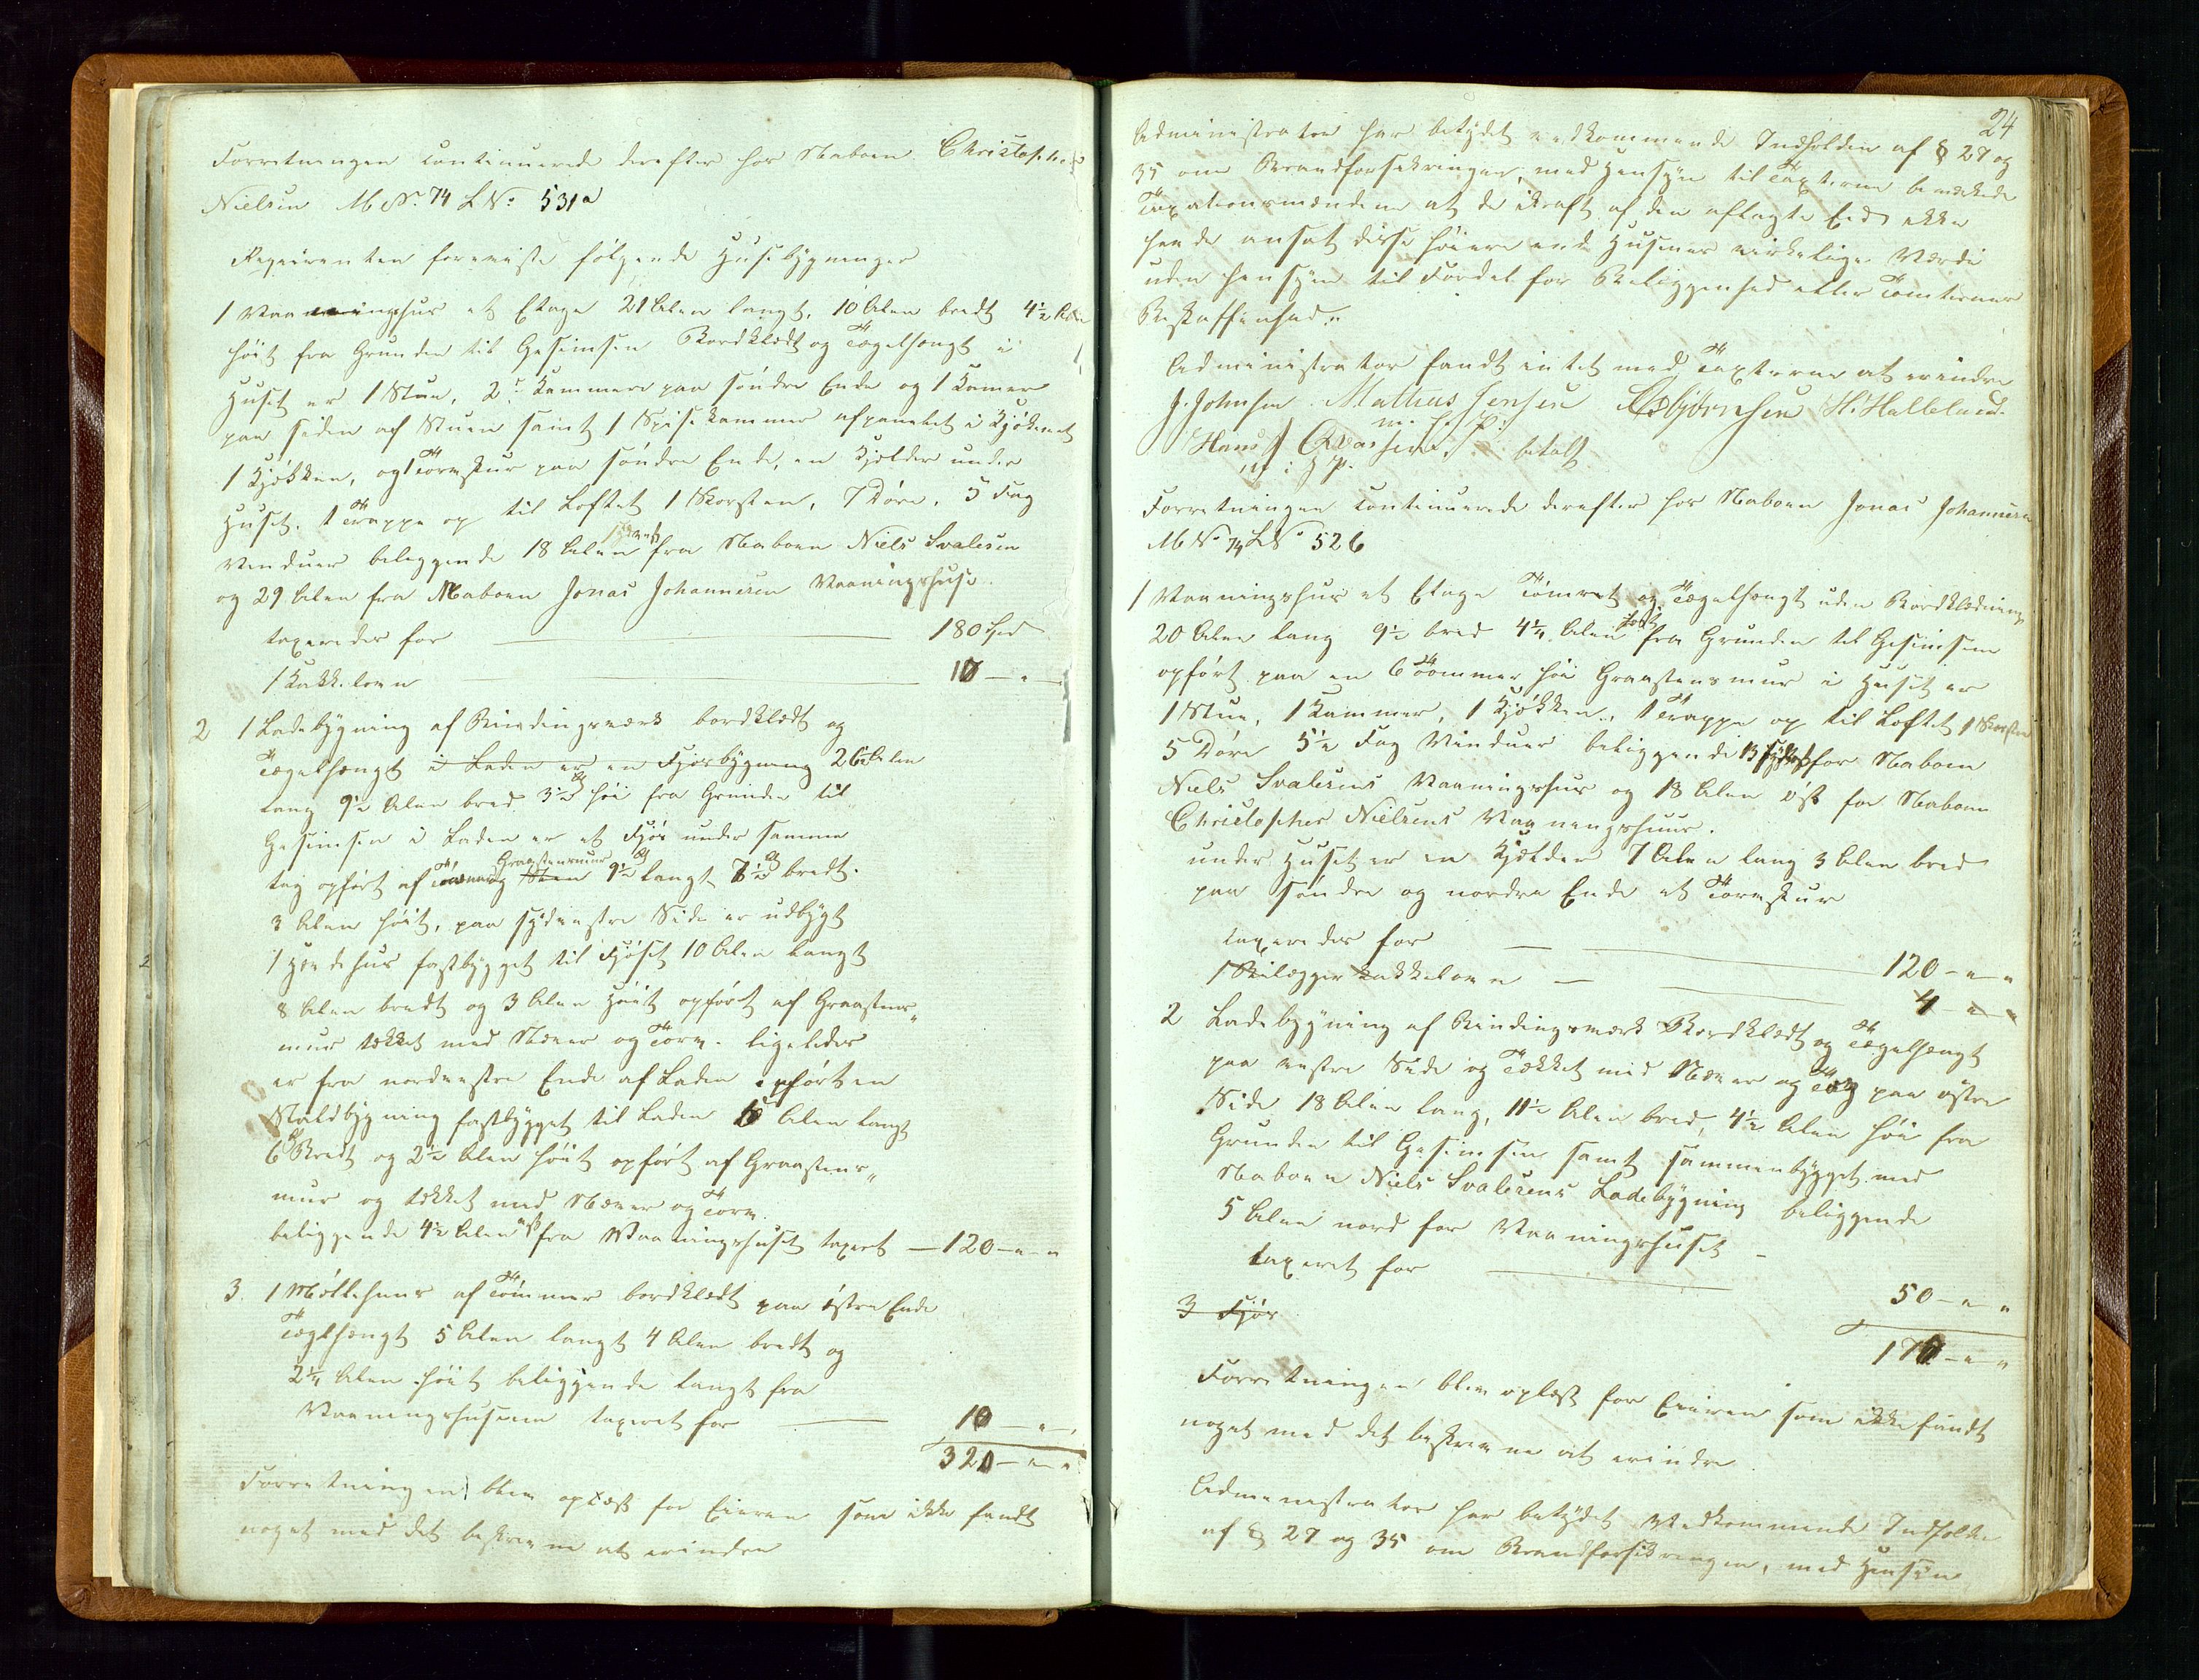 Forretningen continuerede derefter hos Naboen Christopher
Nielsen M No. 74 L No. 531a
Reqvirenten foreviste følgende Husebygninger
1 Vaaningshus et Etage 21 Alen langt, 10 Alen bredt 4½ Alen
høit fra Grunden til Gesimsen Bordklædt og Tægelhængt i
Huset er 1 Stue, 2de Kammere paa søndre Ende og 1 Kamer
paa siden af Stuen samt 1 Spisekammer afpanelet i Kjøkenet
1 Kjøkken, og 1 Torvskur paa søndre Ende, en Kjelder under
Huset. 1 Trappe op til Loftet 1 Skorsten, 7 Døre, 5 Fag
Vinduer beleggende 18 Alen fra Naboen Niels Svalesen
og 29 Alen fra Naboen Jonas Johannesen Vaaningshuse.
taxeredes for 180 Spd
1 Kakkelovn 10 - " -
2 1 Ladebygning af Bindingsværk bordklædt og
Tægelhængt i Laden er en Fjøsbygning 26½ Alen
lang 9½ Alen bred 3½ Al høi fra Grunden til
Gesimsen i Laden er et Fjøs under samme
tag opført af Graastensmuur 9½ Al langt 7½ Al bredt.
3 Alen høit, paa sydvestre Side er udbygt
1 Høedehus fastbygget til Fjøset 10 Alen langt
8 Alen bredt og 3 Alen Høit opført af Graastens„
mur tækket med Næver og Torv. ligeledes
er fra nordvestre Ende af Laden opført en
Staldbygning fastbygget til Laden Alen langt
6 Bredt og 2½ Alen høit opført af Graastens„
mur og tækket med Næver og Torv.
beliggende 4½ Alen vest fra Vaaningshuset taxeret - 120 - " - "
3. 1 Møllehuus af Tømmer bordklædt paa østre Ende
Tæglhængt 5 Alen langt 4 Alen bredt og
2¼ Alen høit beliggende langt fra
Vaaningshusene taxeret for 10 - " -
320 - " - "
Forretningen blev oplæst for Eieren som ikke fandt
noget med det beskrevne at erindre
24
Administrator har betydet vedkommende Indholden af § 27 og
35 om Brandforsikringen, med Hensyn til Taxterne bemærkede
Taxationsmændene at de ikraft af den aflagte Eed ikke
havde ansat disse høiere end Husenes virkelige Værdi
uden hensyn til Fordel for Beliggenhed eller Tomternes
Beskaffenhed."
Administrator fandt intet med Taxterne at erindre
J. Johnsen Mathias Jensen Asbjørnsen H. Halleland
m. f. P.
Hans betalt
m i f P.
Forretningen continuerede derefter hos Naboen Jonas Johannesen
M No 74 L No 526
1 Vaaningshus et Etage Tømret og Tægelhængt uden Bordklædning
20 Alen lang 9½ bred 4¼ Alen høit fra Grunden til Gesimsen
opført paa en 6 Tommer høi Graastensmur i Huset er
1 Stue, 1 Kammer, 1 Kjøkken, 1 Trappe op til Loftet 1 Skorsten
5 Døre 5½ Fag Vinduer beliggende 13 for Naboen
Niels Svalesens Vaaningshus og 18 Alen øst for Naboen
Christopher Nielsens Vaaningshuus.
under Huset er en Kjelder 7 Alen lang 3 Alen bred
paa søndre og nordre Ende et Torvskur
taxeredes for
120 - " - "
1 Bilægger Kakkelovn
4 - " - "
2 Ladebygning af Bindingsværk Bordklædt og Tægelhængt
paa vestre Side og Tækket med Næver og Torv paa østre
Side 18 Alen lang, 11½ Alen bred, 4½ Alen høi fra
Grunden til Gesimsen samt sammenbygget med
Naboen Niels Svalesens Ladebygning beliggende
5 Alen nord for Vaaningshuset
taxeret for
50 - " - "
3 Fjøs
170 - " - "
Forretningen blev oplæst for Eieren som ikke fandt
noget med det beskrevne at erindre.
Administrator har betydet Vedkommende Indholden
af § 27 og 35 om Brandforsikringen, med Hensyn